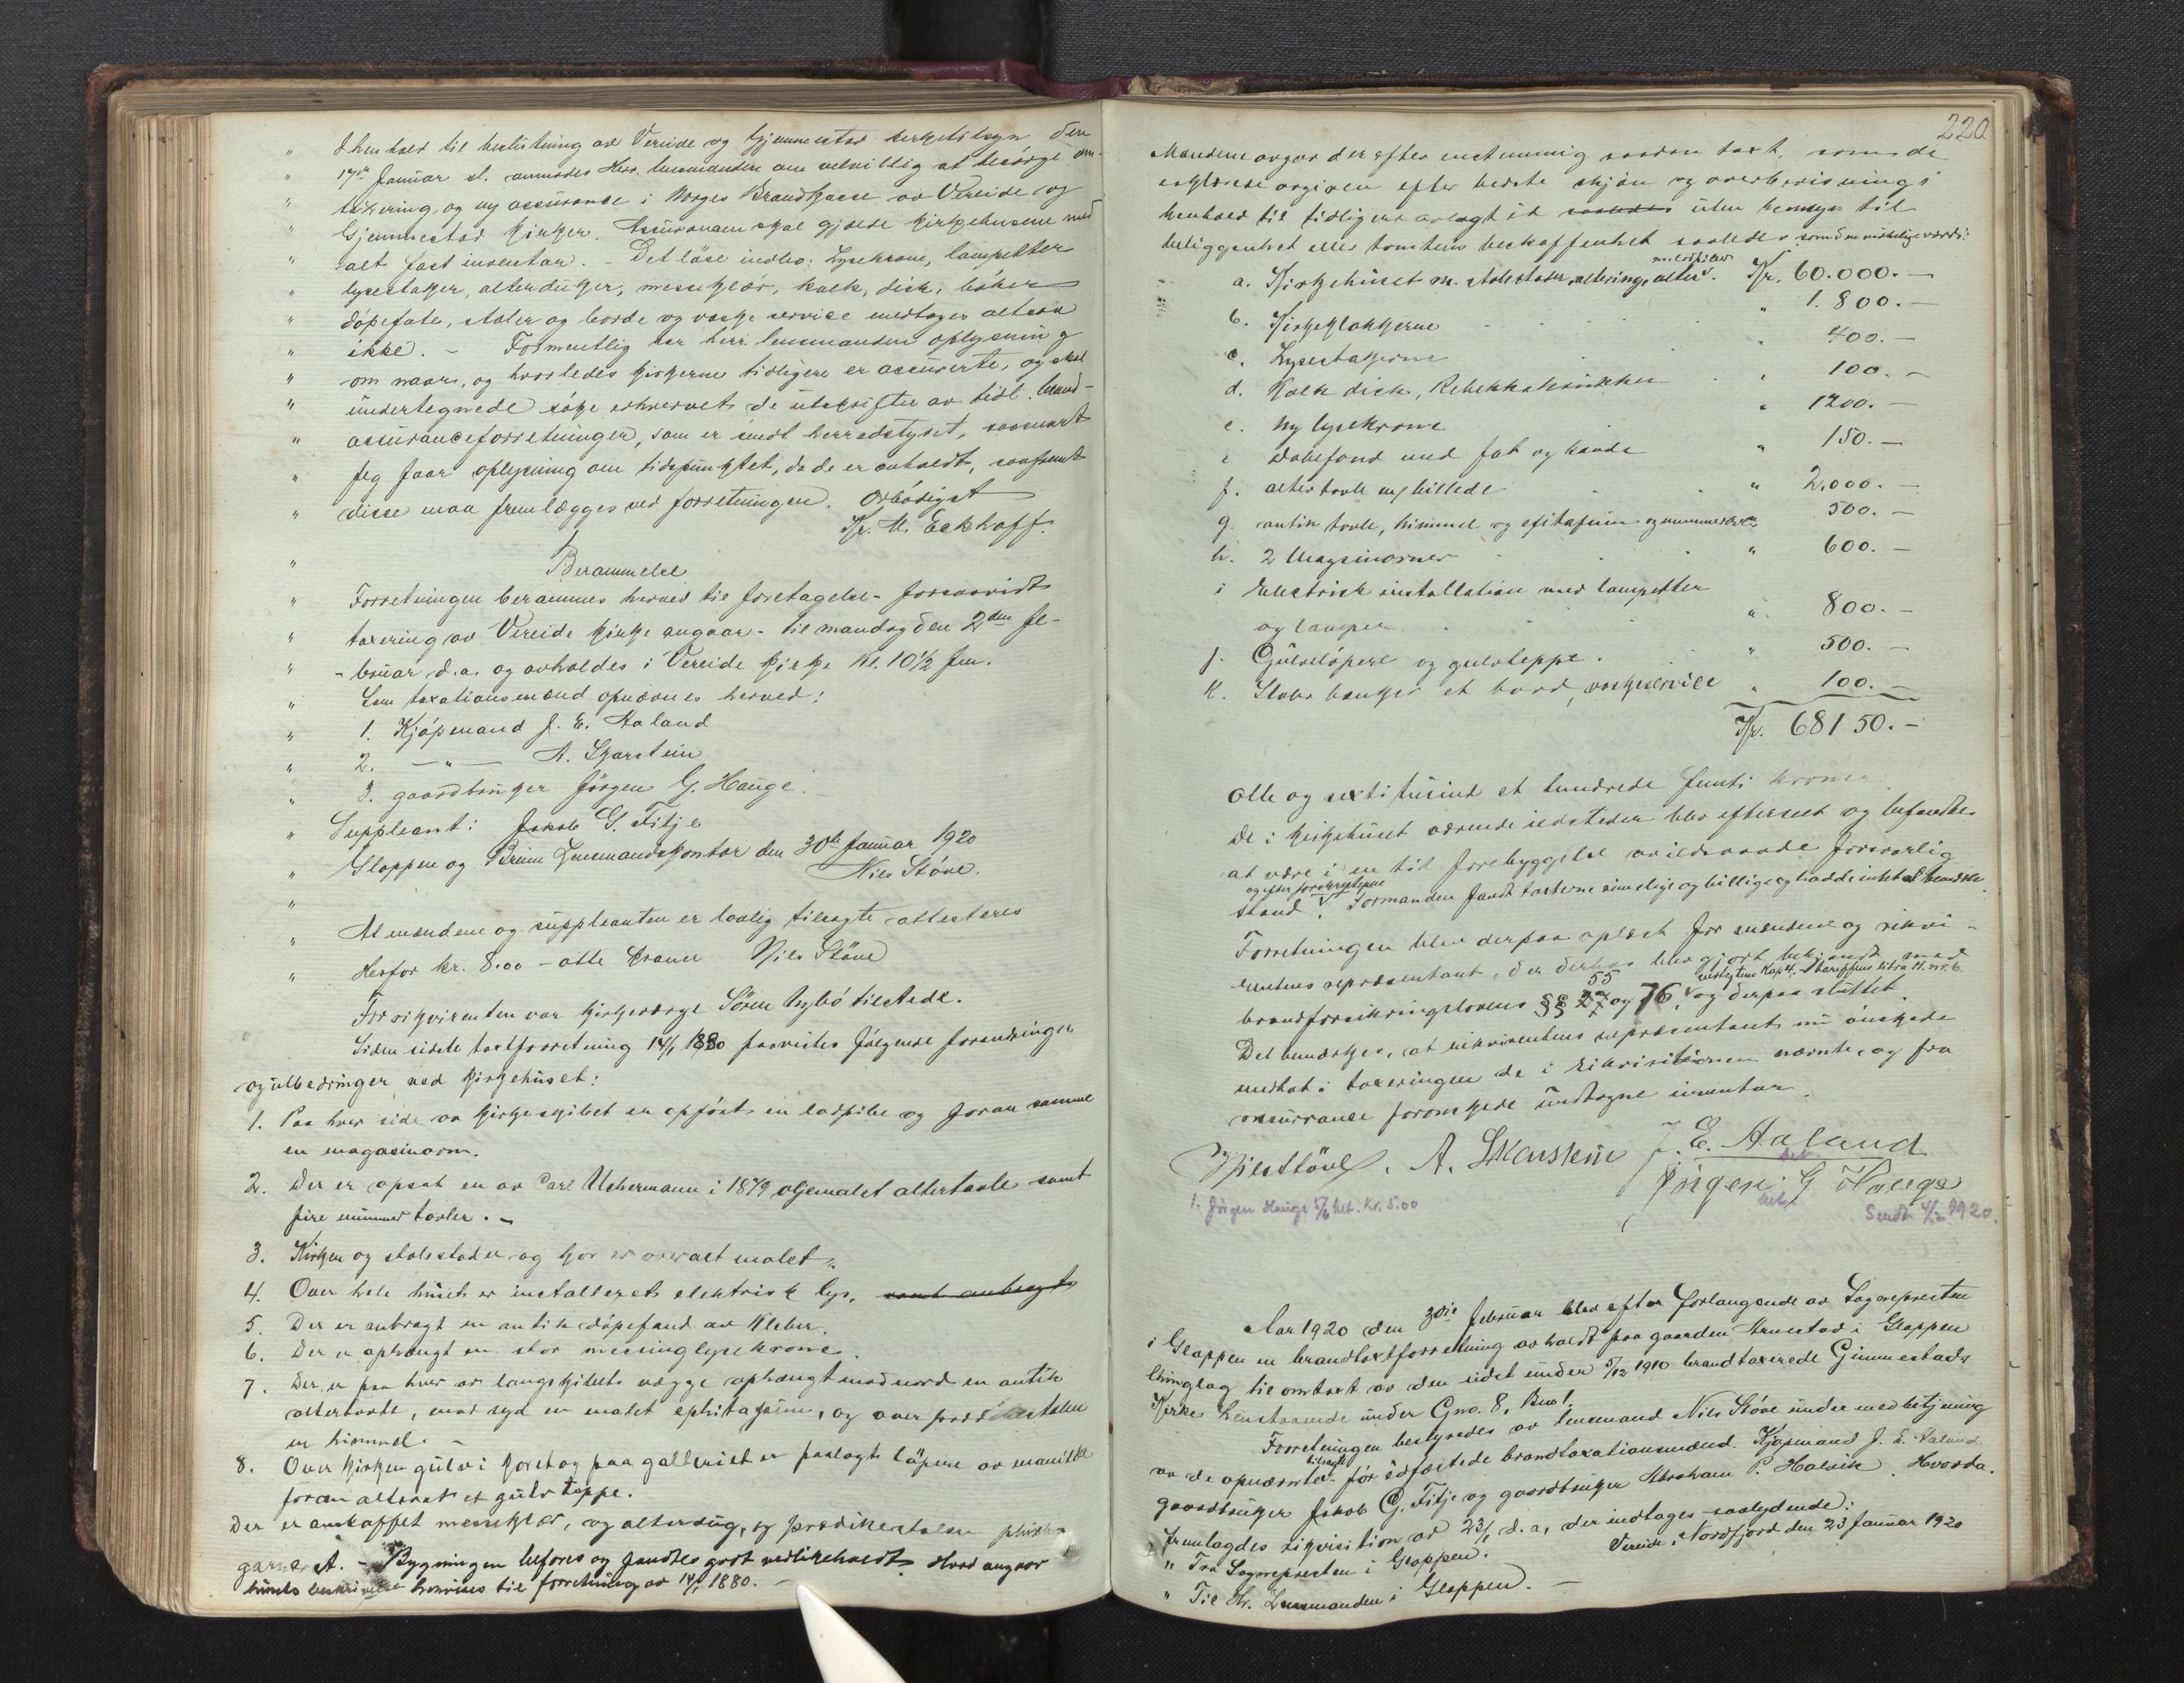 " I henhold til beslutning av Vereide og Gjemmestad kirketilsyn den
" 17de Januar d. anmodes Herr. lensmanden om velvillig at besörge om-
" taksering og ny assurance i Norges Brandkasse av Vereide og
" Gjemmestad kirker. Assurancen skal gjælde kirkehusene med
" alt fast inventar. - Det löse indbo: Lysekrone, lampetter
" lysestaker, alterduker, messeklær, kalk, disk, böker
" döpefate, stoler og borde og vaske service medtages altsaa
" ikke. - Formentlig har herr lensmanden oplysning
" om naar, og hvorledes kirkerne tidligere er assurerte, og skal
" undertegnede söke erhvervet de utskrifter av tidl. brand-
" assuranceforretninger, som er sendt herredstyret, saasnart
" jeg faar oplysning om tidspunktet, da de er avholdt, saafremt
" disse maa fremlægges ved forretningen. Ærbödigst
Kr. M. Eckhoff.
" Berammelse
" Forretningen berammes herved til foretagelse - forsaavidt
" taxering av Vereide kirke angaar - til mandag den 2den fe-
" -bruar d.a. og avholdes i Vereide kirke kl. 10½ fm.
" Som taxationsmænd opnævnes herved:
" 1. Kjöpmand J. E. Aaland
" 2. —"— A. Skarstein
" 3. gaardbruker Jörgen G. Hauge.
" Suppleant: Jakob G. Fitje
" Gloppen og Breim Lensmandskontor den 30te Januar 1920
" Nils Stöve.
" At mændene og suppleanten er lovlig tilsagte attesteres
" Herfor kr. 8.00 - otte kroner Nils Stöve
For rikvirenten var kirkeverge Sören Nybö tilstede.
Siden sidste taxtforretning 14/1 1880 paavistes fölgende forandringer
og utbedringer ved kirkehuset:
1. Paa hver side av kirkeskibet er opfört en ladpibe og foran samme
en magasinovn.
2. Der er opsat en av Carl Uchermann i 1879 oljemalet altertavle samt
fire nummertavler. -
3. Kirken og stolestader og kor er overalt malet.
4. Over hele huset er installeret elektrisk lys, samt anbragt
5. Der er anbragt en antik döpefond av Kleber.
6. Der er ophængt en stor messinglysekrone.
7. Der er paa hver av langskibets vægge ophængt mod nord en antik
altertavle, mod syd en malet ephitafium, og over prædikestolen
en himmel. -
8. Over kirkens gulv i koret og paa galleriet er paalagt löpere av manilla
foran alteret et gulvteppe.
Der er anskaffet messeklær, og alterdug, og prædikestolen
garneret. - Bygningen befores og fandtes godt vedlikeholdt. Hvad angaar
husets beskrivelse henvises til forretning av 14/1 1880. -
220
Mændene avgav derefter enstemmig saadan taxt, som de
erklærede avgiven efter bedste skjön og overbevisning i
henhold til tidligere avlagt ed saaledes uten hensyn til
beliggenhet eller tomtens beskaffenhet saaledes som den virkelige værdi:
a. Kirkehuset m. stolestader, altering, alter m. ladpiber. Kr. 60.000.-
b. Kirkeklokkerne " 1.800.-
c. Lysestakerne " 400.-
d. Kalk disk, Rebekkakrukken " 100.-
e. Ny lysekrone " 1200.-
e Döbefond med fat og kande " 150.-
f. altertavle m/ billede " 2.000.-
g. antik tavle, himmel og epitafium og nummertavler 500.-
h. 2 Magasinovner " 600.-
i Electrisk installation med lampetter
og lamper " 800.-
j. Gulvlöpere og gulvteppe. " 500.-
k. Stoler benker et bord, vaskeservice " 100.-
Kr. 68150.-
Otte og sexti tusind et hundrede femti kroner
De i kirkehuset værende ildsteder blev efterseet og befandtes
at være i en til forebyggelse av ildsvaade forsvarlig
og efter forskrifterne
stand. Formanden fandt taxterne rimelige og billige og hadde intet at bemærke.
Forretningen blev derpaa oplæst for mændene og rikvi-
rentens repræsentant, der derhos blev gjort bekjendt med
55 vedtægtens Kap. 4. Tariffens litra H. nr. 6.
brandforsikringslovens §§ 27 og 76, og derpaa sluttet.
Det bemærkes, at rikvirentens repræsentant nu önskede
medtat i taxeringen de i rikvisitionen nævnte, og fra
assurrance forönskede undtagne inventar.
Nils Stöve. A. Skarstein J. E. Aaland
bet.
Jörgen G Hauge
bet.
1. Jörgen Hauge 5/6 bet. Kr. 5.00
Sendt 4/2 1920.
Aar 1920 den 3die Februar blev efter forlangende av Sognepresten
i Gloppen en brandtaxtforretning avholdt paa gaarden Arnestad i Gloppen
thinglag til omtaxt av den sidst under 5/12 1910 brandtaxerede Gimmestads
Kirke henstaaende under Gno. 8, Bno 1.
Forretningen bestyredes av lensmand Nils Stöve under medbetjening
tilsagte
av de opnævnte för edfæstede brandtaxationsmænd. Kjöpmand J. E. Aaland
gaardbruker Jakob G. Fitje og gaardbruker Abraham P. Holvik. Hvorda.
Fremlagdes rikvisition av 23/1 d.a, der indtages saalydende:
" Fra Sognepresten i Gloppen. Vereide, Nordfjord den 23 Januar 1920
" Til Hr. Lensmanden i Gloppen. -